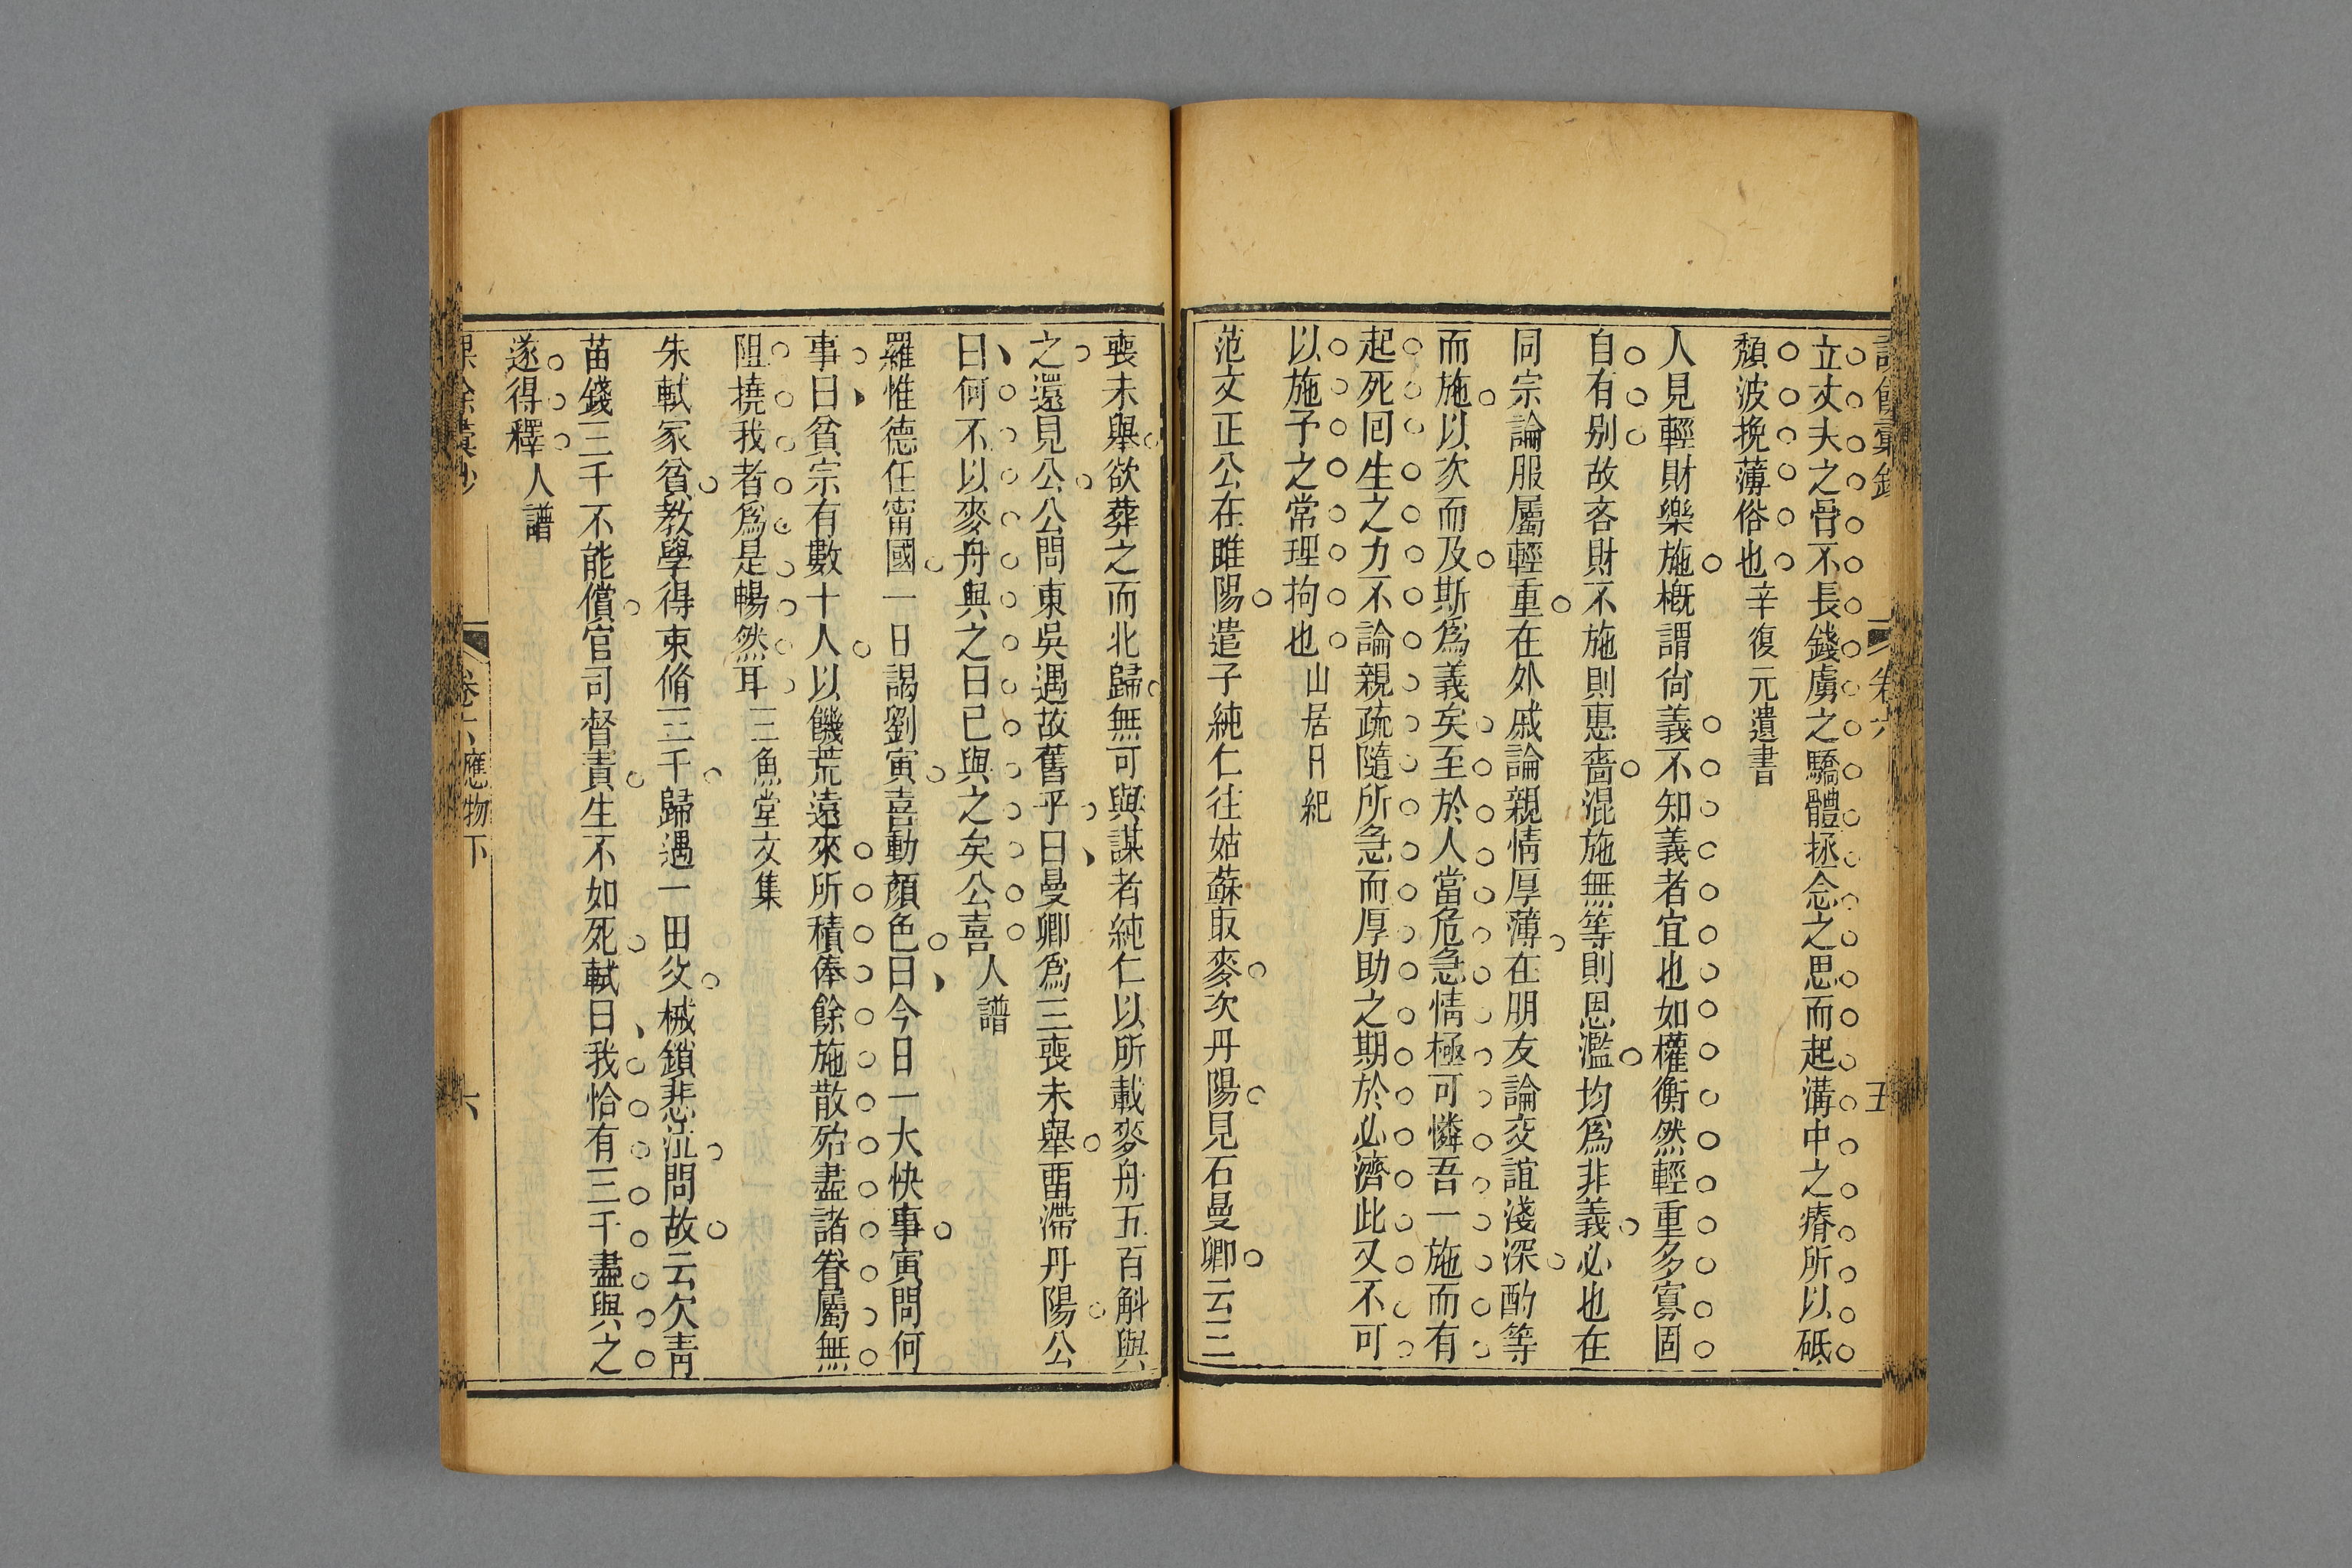 立丈夫之骨不長錢虜之驕體拯念之思而起溝中之瘠所以砥
頹波挽薄俗也辛復元遺書
人見輕財樂施槪謂尙義不知義者宜也如權衡然輕重多寡固
自有别故吝財不施則惠嗇混施無等則恩濫均爲非義必也在
同宗論服屬輕重在外戚論親情厚薄在朋友論交誼淺深酌等
而施以次而及斯爲義矣至於人當危急情極可憐吾一施而有
起死回生之力不論親疏隨所急而厚助之期於必濟此又不可
以施予之常理拘也山居日紀
范文正公在雎陽遣子純仁往姑蘇取麥次丹陽見石曼卿云三
喪未舉欲葬之而北歸無可與謀者純仁以所載麥舟五百斛與
之還見公公問東吳遇故舊乎曰曼卿爲三喪未舉畱滯丹陽公
曰何不以麥舟與之曰已與之矣公喜人譜
羅惟德任甯國一日謁劉寅喜動顏色曰今日一大快事寅問何
事曰貧宗有數十人以饑荒遠來所積俸餘施散殆盡諸眷屬無
阻撓我者爲是暢然耳三魚堂文集
朱軾家貧教學得束脩三千歸遇一田父械鎖悲泣問故云欠靑
苗錢三千不能償官司督責生不如死軾曰我恰有三千盡與之
遂得釋人譜
卷六應物下 六